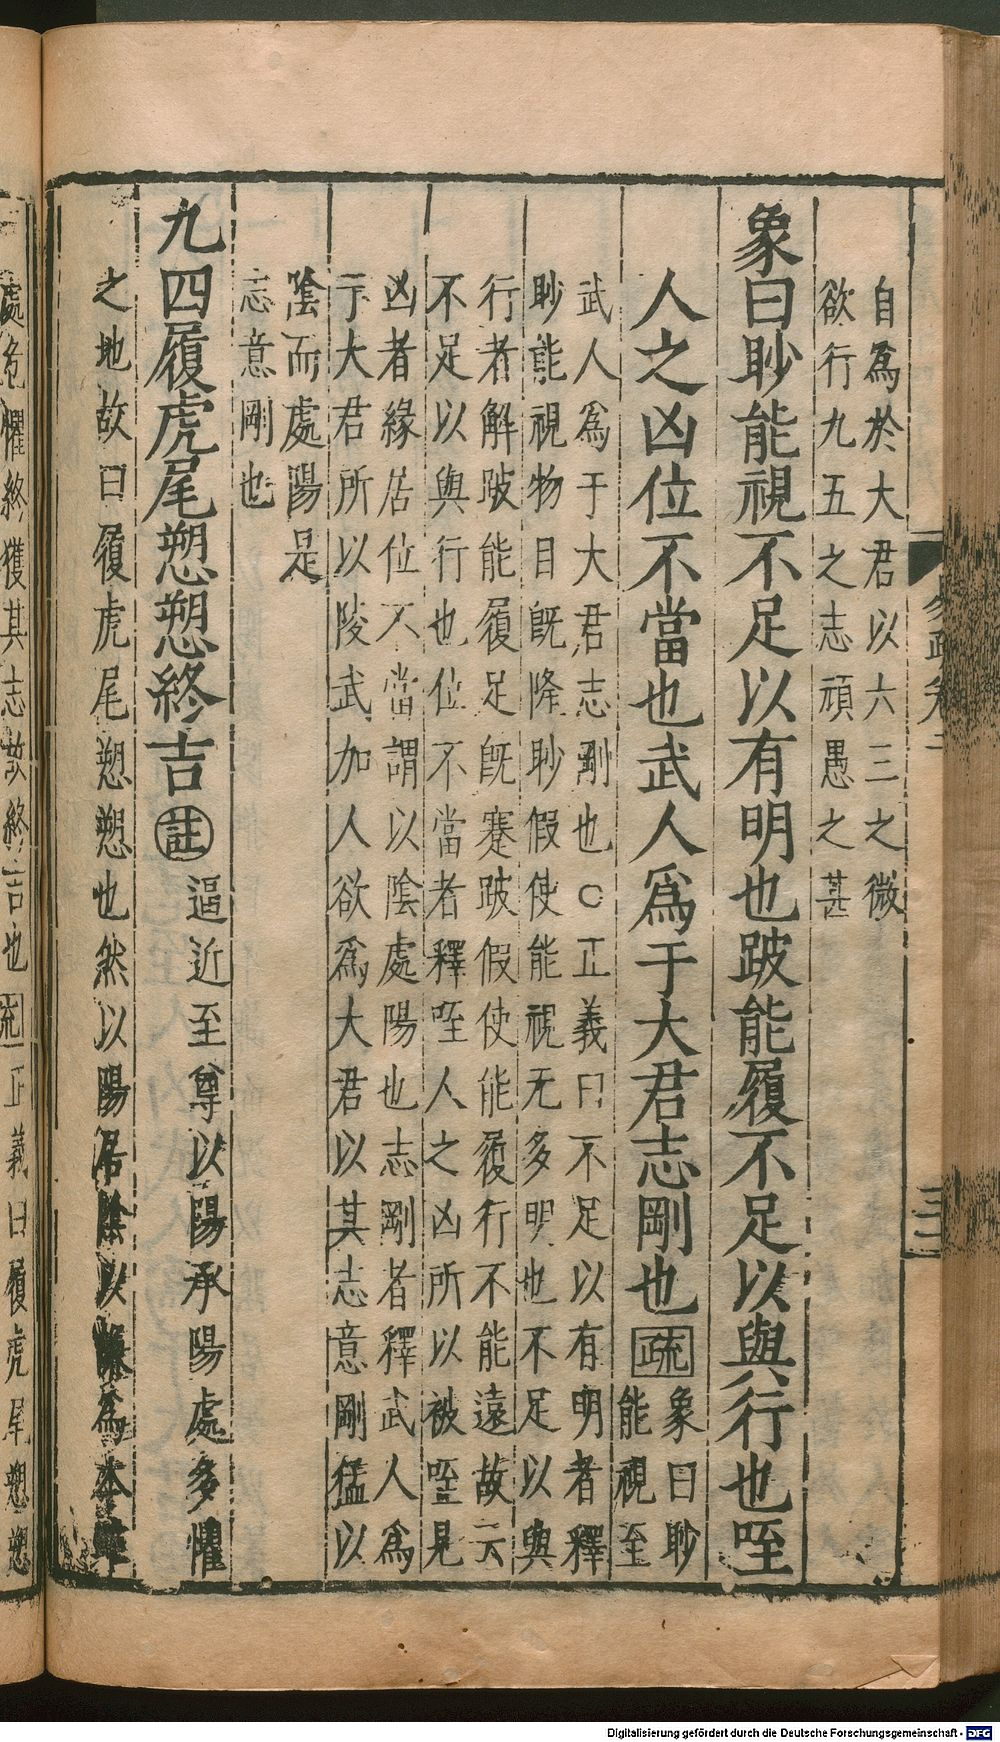 自爲於大君以六三之微
欲行九五之志頑愚之甚
象曰眇能視不足以有明也跛能履不足以與行也咥
人之凶位不當也武人爲于大君志剛也疏
象曰眇
能視至
武人爲于大君志剛也○正義曰不足以有明者釋
眇能視物目旣隆眇假使能視无多明也不足以與
行者解跛能履足旣蹇跛假使能履行不能遠故云
不足以與行也位不當者釋咥人之凶所以被咥見
凶者緣居位不當謂以陰處陽也志剛者釋武人爲
于大君所以陵武加人欲爲大君以其志意剛猛以
陰而處陽是
志意剛也
九四履虎尾愬愬終吉註
逼近至尊以陽承陽處多懼
之地故曰履虎尾愬愬也然以陽居陰以謙爲本雖
處危懼終獲其志故終吉也疏正義曰履虎尾愬愬
易疏卷二
三三
Digitalisierung gefördert durch die Deutsche Forschungsgemeinschaft - DFG